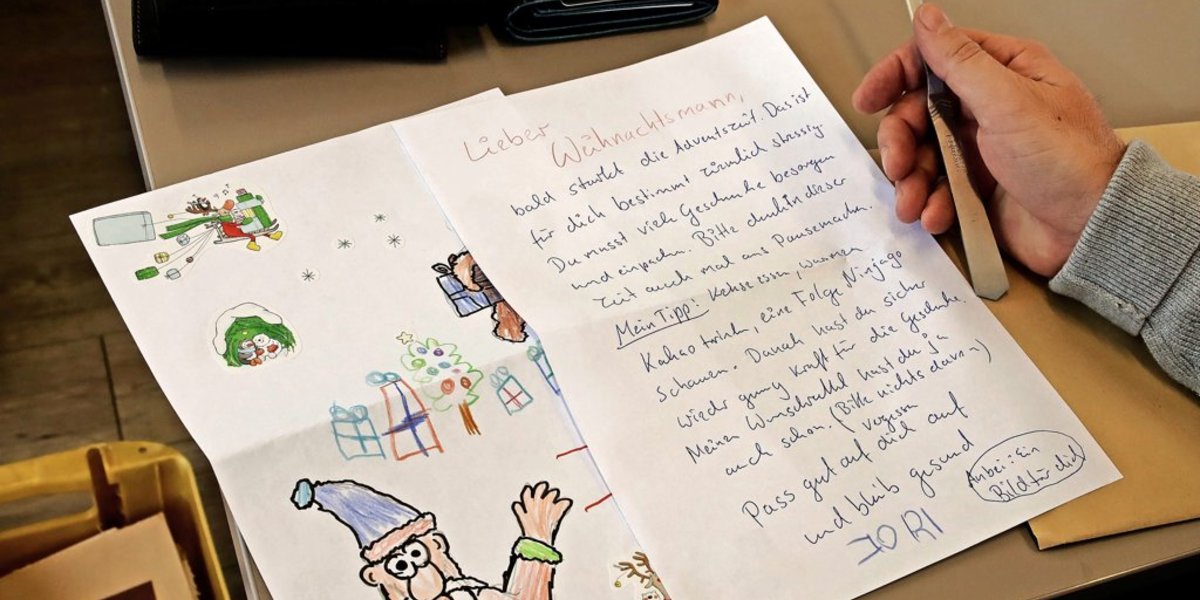 Lieber
Weihnachtsmann,
bald startet die Adventszeit. Das ist
für dich bestimmt ziemlich stressig.
Du musst viele Geschenke besorgen
und einpacken. Bitte denk in dieser
Zeit auch mal ans Pausemachen.
Mein Tipp: Kekse essen, warmen
Kakao trinken, eine Folge Ninjago
schauen. Danach hast du sicher
wieder genug Kraft für die Geschenke.
Meinen Wunschzettel hast du ja
auch schon. (Bitte nichts davon
vergessen)
Pass gut auf dich auf
und bleib gesund
JORI
Anbei: Ein
Bild für dich